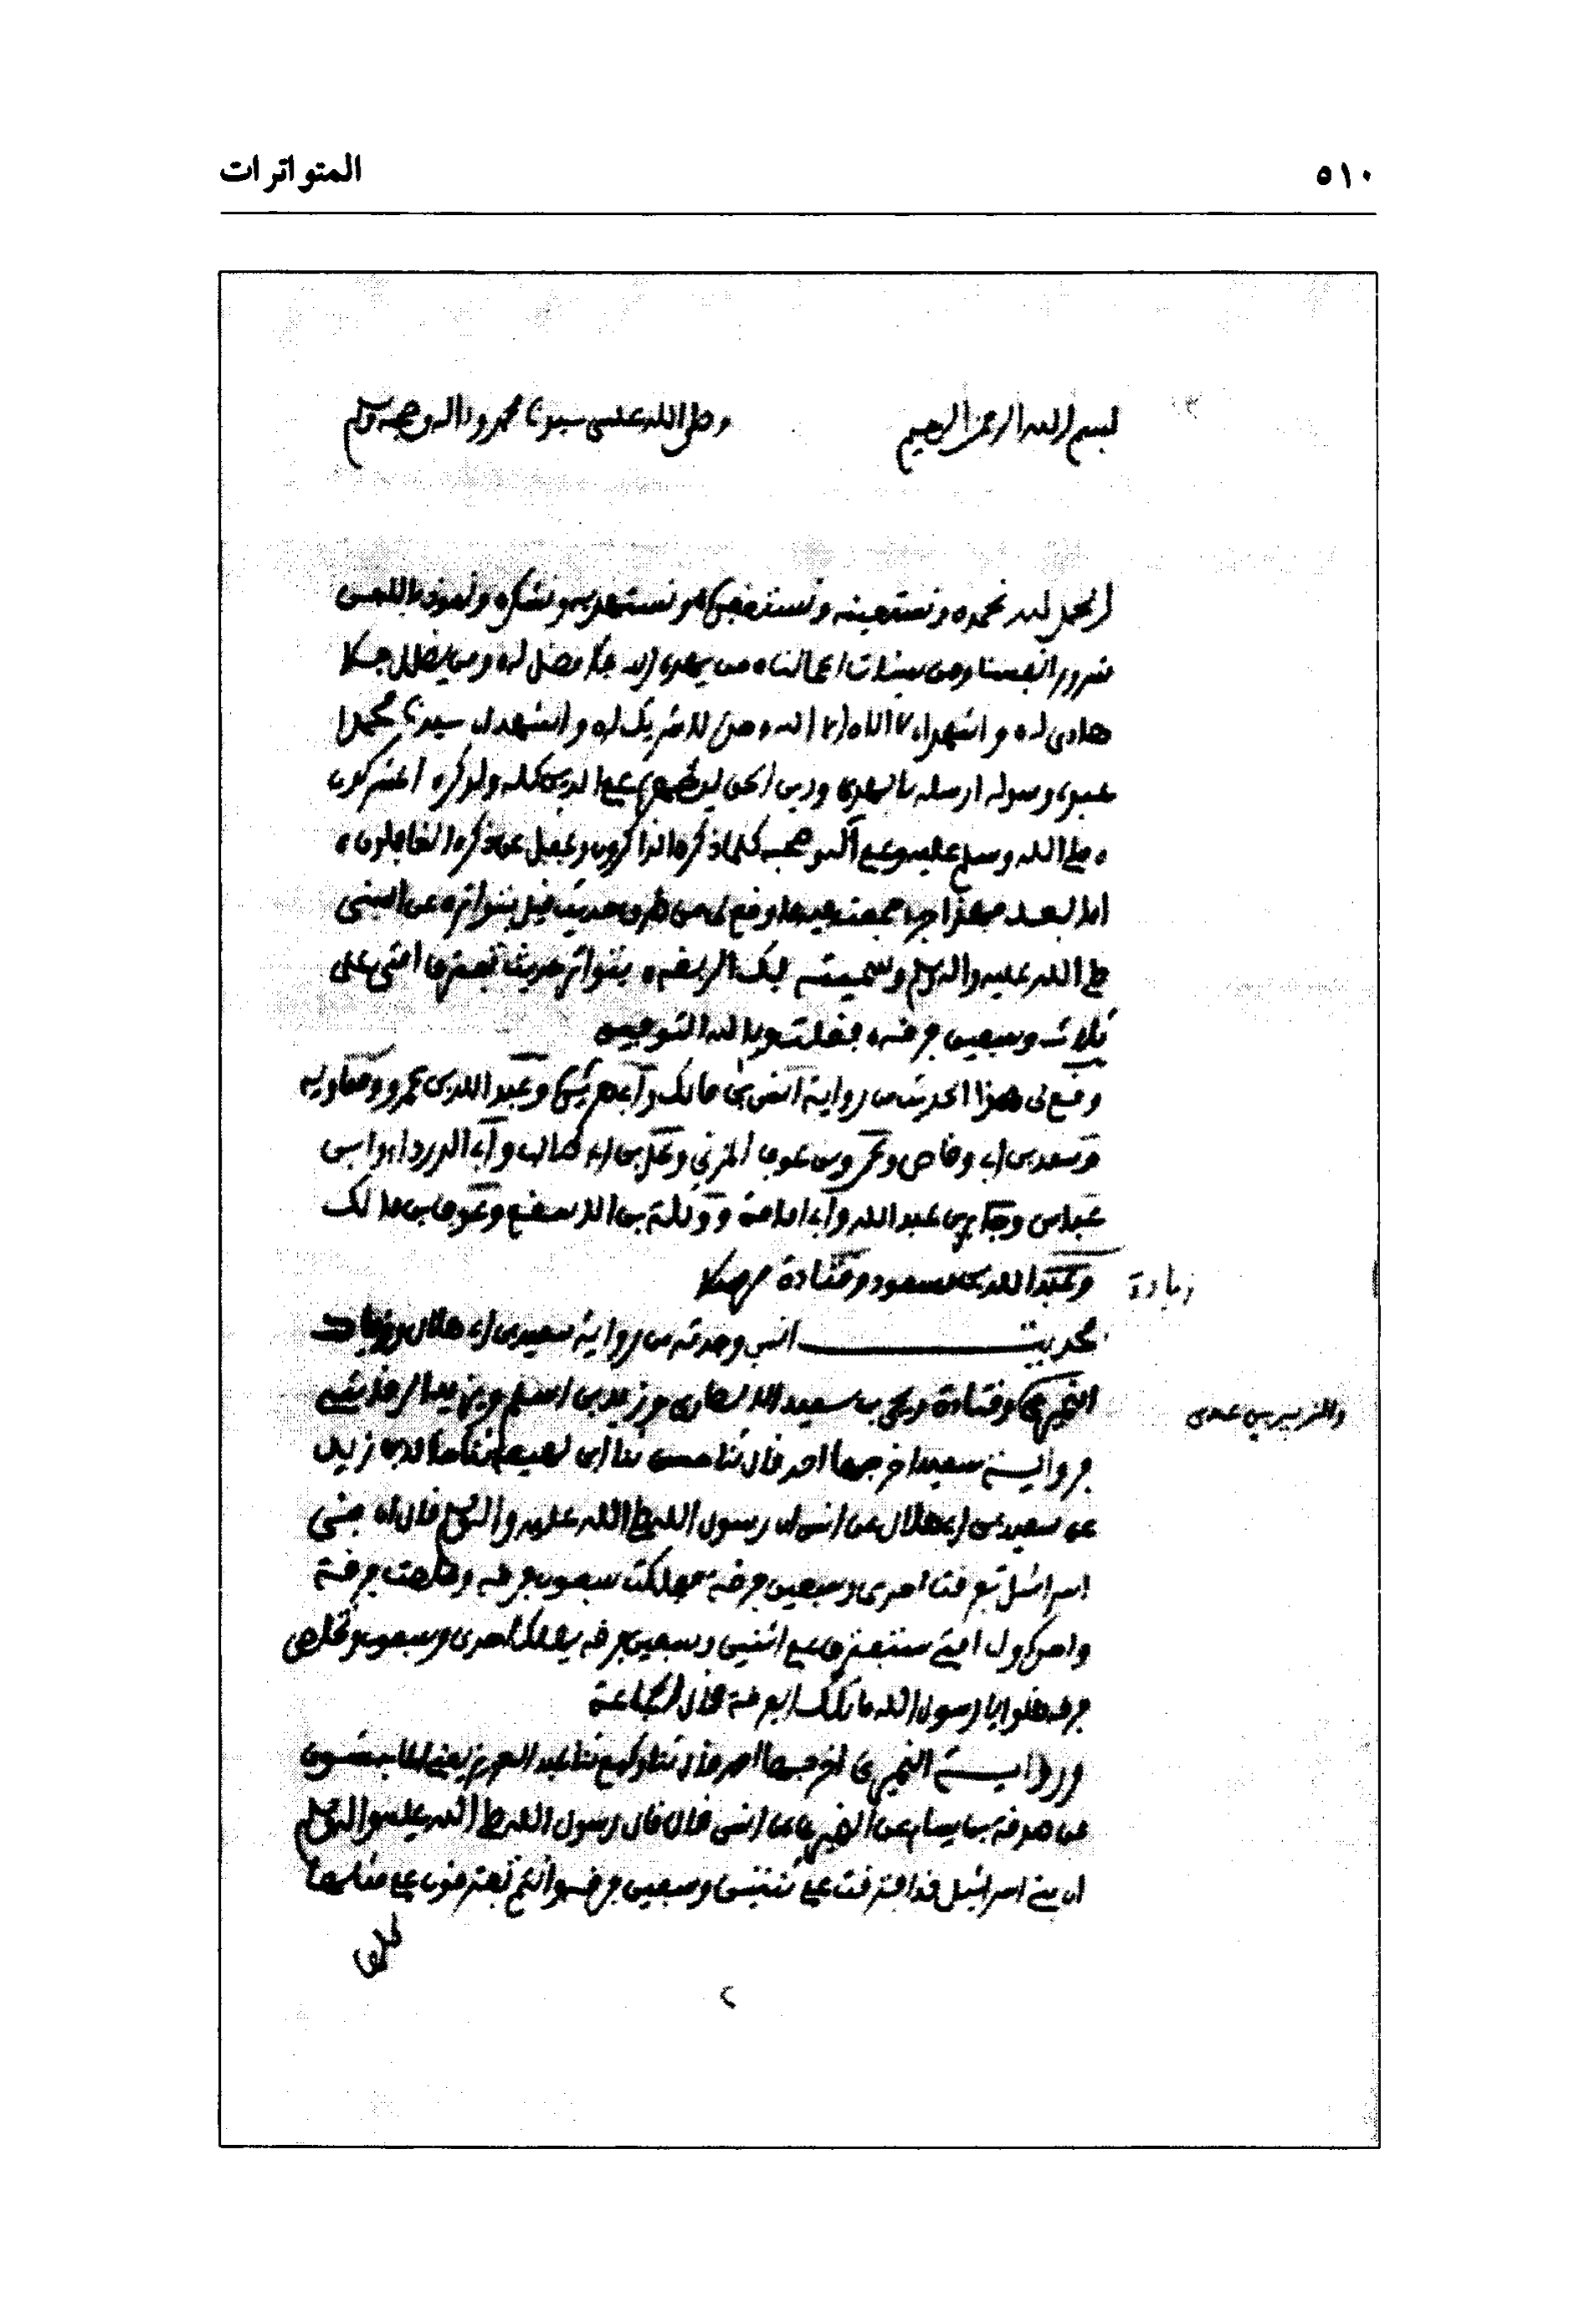 ٥١٠ المتواترات
بسم الله الرحمن الرحيم وصلى الله على سيدنا محمد واله وصحبه وسلم
الحمد لله نحمده ونستعينه ونستغفره ونستهديه ونشكره ونعوذ بالله من
شرور انفسنا ومن سيئات اعمالنا من يهد الله فلا مضل له ومن يضلل فلا
هادي له واشهد ان لا اله الا الله وحده لا شريك له واشهد ان سيدنا محمدا
عبده ورسوله ارسله بالهدى ودين الحق ليظهره على الدين كله ولو كره المشركون
صلى الله وسلم عليه وعلى آله وصحبه كلما ذكره الذاكرون وغفل عن ذكره الغافلون
اما بعد فهذا جزء جمعت فيه ما وقع لي من طرق حديث قيل بتواتره عن النبي
صلى الله عليه واله وسلم وسميته بتواتر حديث تفترق امتي على
ثلاث وسبعين فرقة فقلت وبالله التوفيق
وقع لي هذا الحديث من رواية أنس بن مالك وأبي هريرة وعبد الله بن عمرو ومعاوية
وسعد بن أبي وقاص وعمرو بن عوف المزني وعلي بن أبي طالب وأبي الدرداء وابن
عباس وجابر بن عبد الله وأبي امامة وواثلة بن الاسقع وعوف بن مالك
وعبد الله بن مسعود وقتادة مرسلا
زيادة
فحديث انس وجدته من رواية سعيد بن أبي هلال وزياد
النميري وقتادة ويحيى بن سعيد الانصاري وزيد بن اسلم ويزيد الرقاشي
والزبير بن عدي
فرواية سعيد اخرجها احمد قال ثنا حسن ثنا ابن لهيعة ثنا خالد بن زيد
عن سعيد بن أبي هلال عن انس ان رسول الله صلى الله عليه واله وسلم قال ان بني
اسرائيل تفرقت احدى وسبعين فرقة فهلكت سبعون فرقة وخلصت فرقة
واحدة وان امتي ستفترق على اثنتين وسبعين فرقة يهلك احدى وسبعون وتخلص
فرقة قالوا يا رسول الله ما تلك الفرقة قال الجماعة
ورواية النميري اخرجها احمد قال ثنا وكيع ثنا عبد العزيز يعني الماجشون
عن صدقة بن يسار عن النميري عن انس قال قال رسول الله صلى الله عليه واله وسلم
ان بني اسرائيل قد افترقت على ثنتين وسبعين فرقة وانتم تفترقون على مثلها
كلها
٢